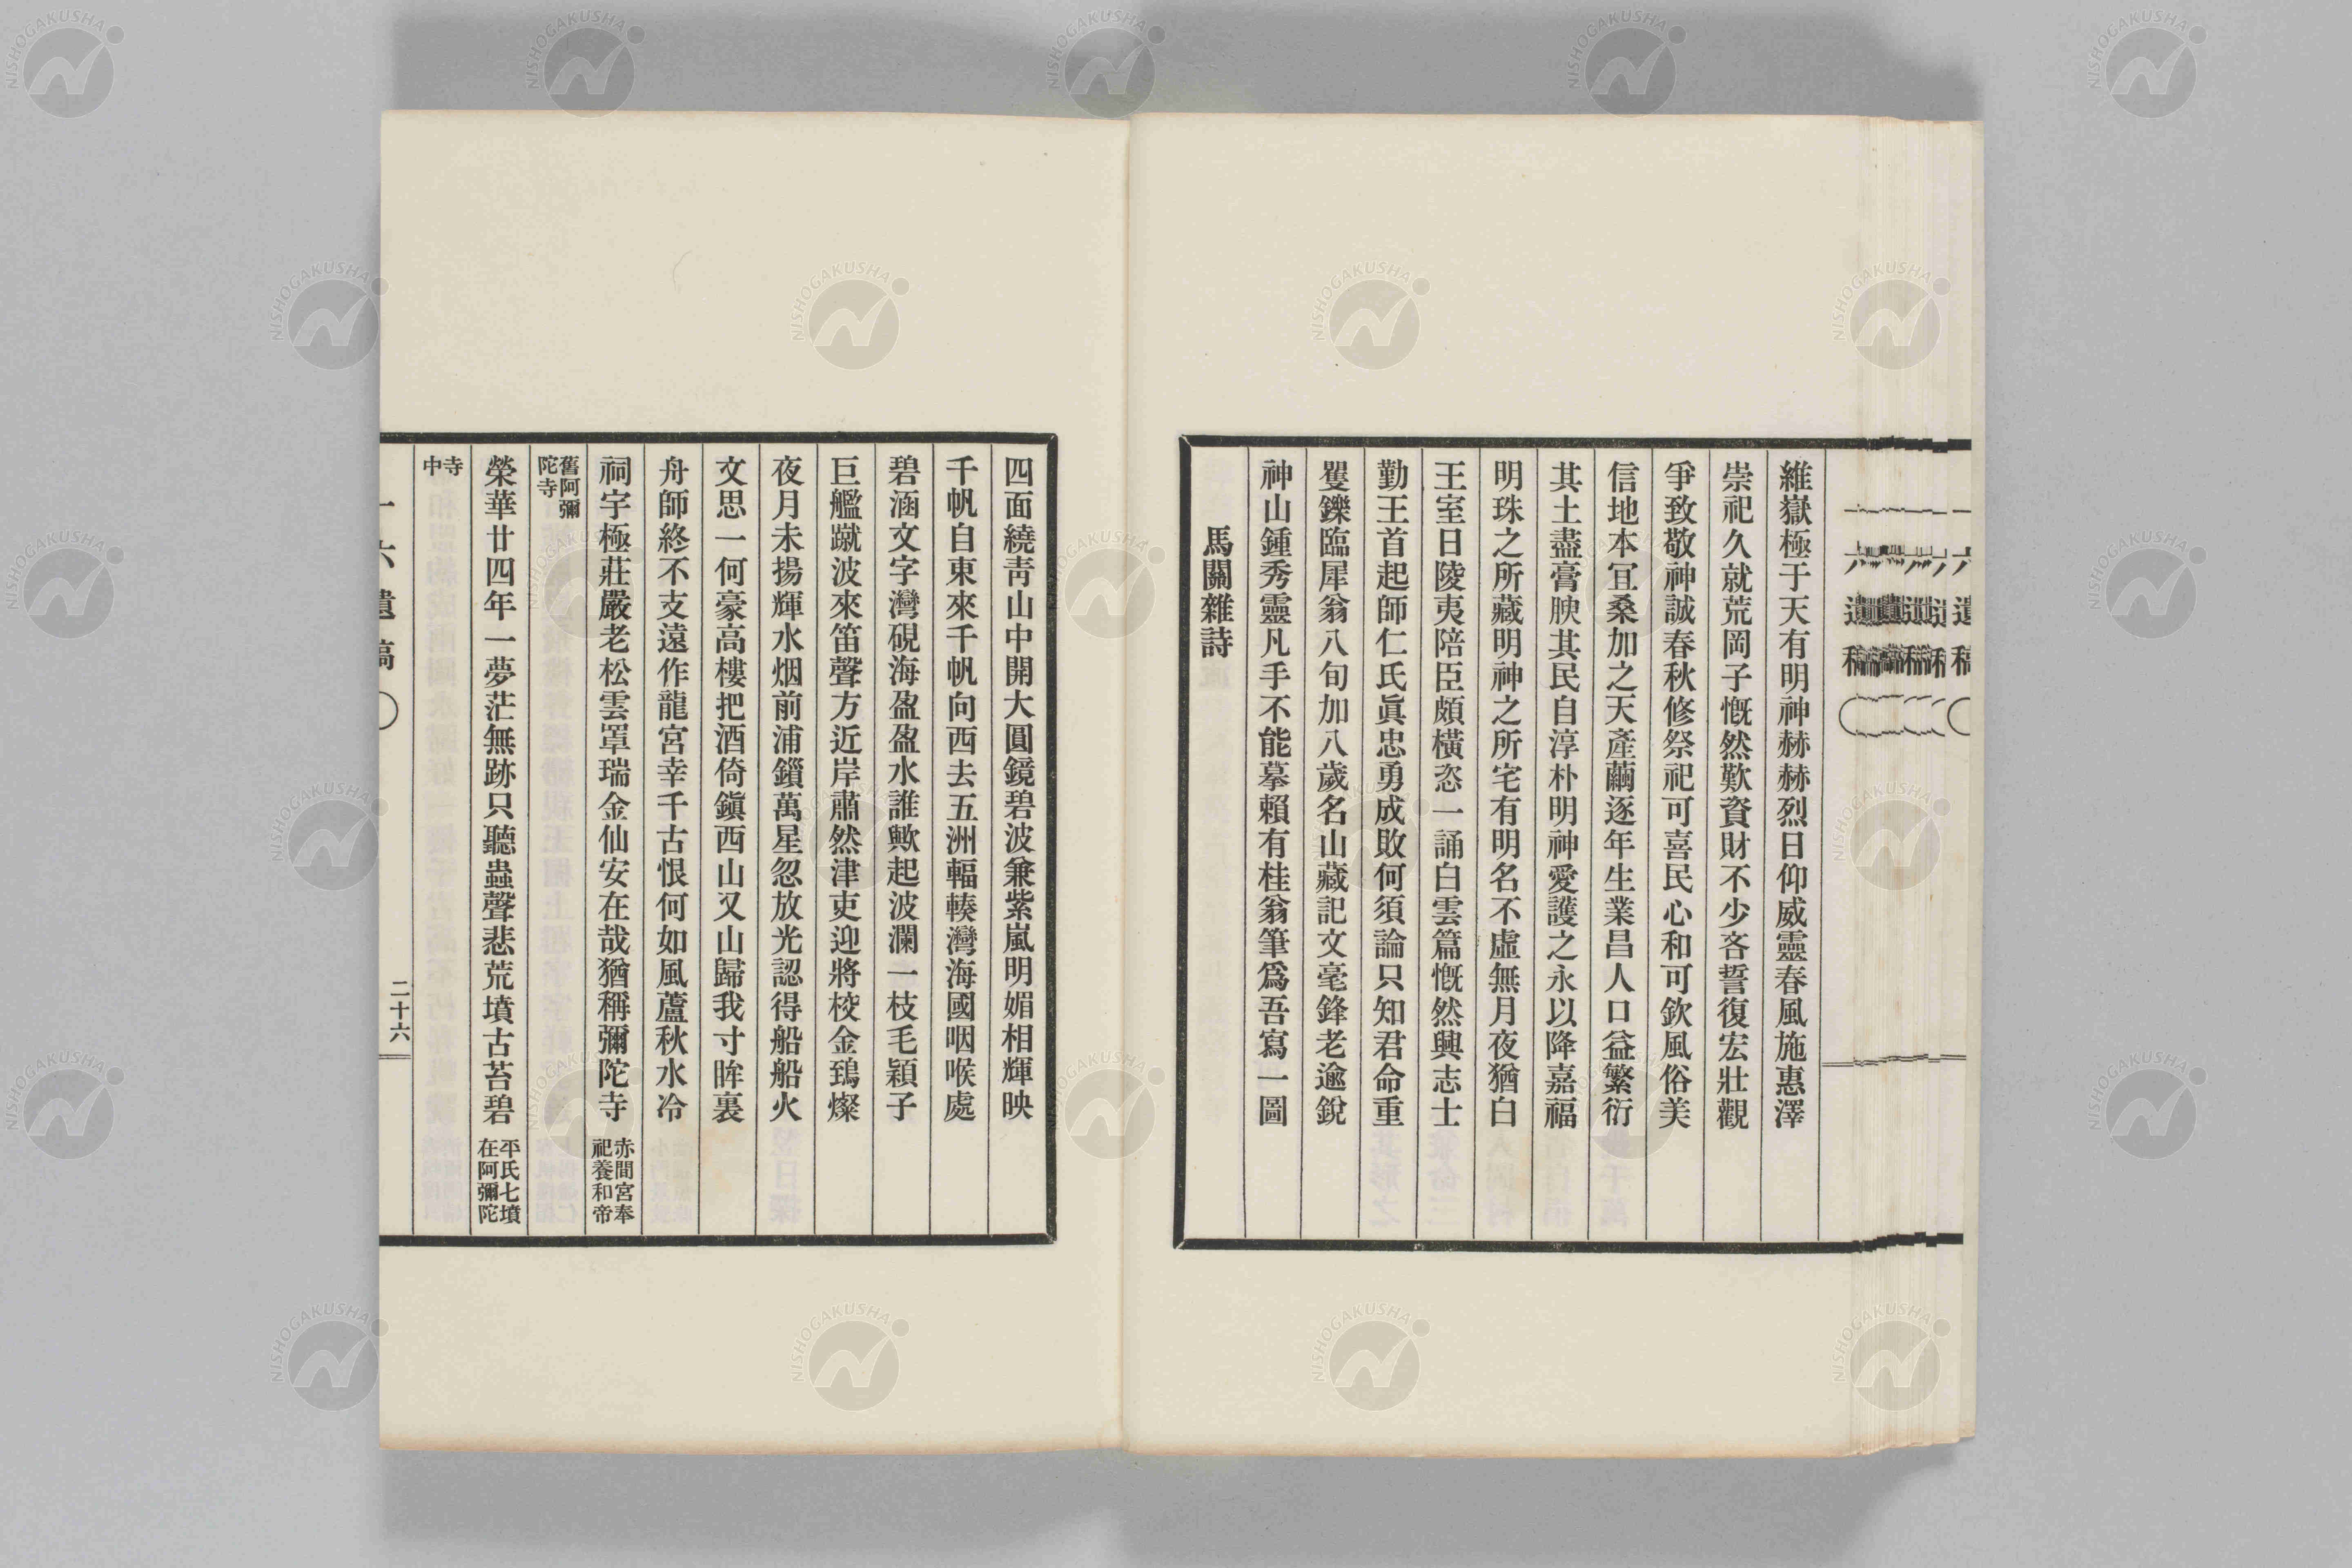 維嶽極于天有明神赫赫烈日仰威靈春風施惠澤
崇祀久就荒岡子慨然歎資財不少吝誓復宏壯觀
爭致敬神誠春秋修祭祀可喜民心和可欽風俗美
信地本冝桑加之天產繭逐年生業昌人口益繁衍
其土盡膏腴其民自淳朴明神愛護之永以降嘉福
明珠之所藏明神之所宅有明名不虛無月夜猶白
王室日陵夷陪臣頗橫恣一誦白雲篇慨然興志士
勤王首起師仁氏眞忠勇成敗何須論只知君命重
矍鑠臨犀翁八旬加八歲名山藏記文毫鋒老逾銳
神山鍾秀靈凡手不能摹賴有桂翁筆爲吾寫一圖
馬關雜詩
四面繞靑山中開大圓鏡碧波兼紫嵐明媚相輝映
千帆自東來千帆向西去五洲輻輳灣海國咽喉處
碧涵文字灣硯海盈盈水誰歟起波瀾一枝毛穎子
巨艦蹴波來笛聲方近岸肅然津吏迎將校金鵄燦
夜月未揚輝水烟前浦鎖萬星忽放光認得船船火
文思一何豪高樓把酒倚鎭西山又山歸我寸眸裏
舟師終不支遠作龍宮幸千古恨何如風蘆秋水冷
祠宇極莊嚴老松雲罩瑞金仙安在哉猶稱彌陀寺 赤間宮奉祀養和帝
舊阿彌陀寺
榮華廿四年一夢茫無跡只聽蟲聲悲荒墳古苔碧 平氏七墳在阿彌陀
寺中
一六遺稿
二十六
NISHOGAKUSHA